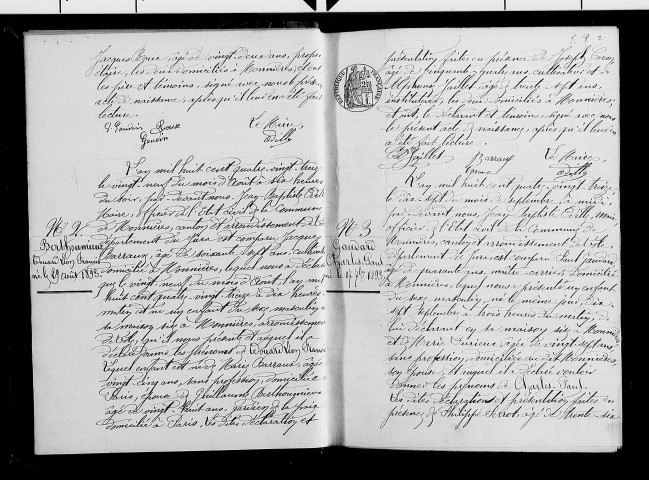 Jacques Roux, âgé de vingt-deux ans, propri-
étaire, les deux domiciliés à Monnières, et ont
les père et témoins, signé avec nous le présent
acte de naissance, après qu'il leur en été fait
lecture.
Roux Le Maire,
Gouvin Edily
L'an mil huit cent quatre-vingt-treize
le vingt-neuf du mois d'Août à six heures
du soir, par devant nous, Jean Baptiste
Maire, officier de l'État civil de la Commune
de Monnières, canton et arrondissement de Dôle
département du Jura est comparu Jacques
Barraux, âgé de soixante sept ans, cultivateur
domicilié à Monnières, lequel nous a déclaré
que le vingt-neuf du mois d'Août, l'an mil
huit cent quatre-vingt-treize à dix heures
matin est né un enfant du sexe masculin en
sa maison sise à Monnières, arrondissement
de Dôle, qu'il nous présente et auquel il a
déclaré donner les prénoms de Edouard Léon Francis
Lequel enfant est né de Marie Barraux, âgée
vingt-cinq ans, sans profession, domiciliée à
Paris, épouse de Guillaume Berthoumieux
âgé de vingt-huit ans, gardien de la paix
domicilié à Paris. Les dites déclaration et
N° 2
Berthoumieux
Edouard Léon Francis
né le 29 août 1893
192
présentation faites en présence de Joseph
âgé de cinquante-quatre ans cultivateur et de
Alphonse Jaillet, âgé de trente sept ans,
instituteur, les deux domiciliés à Monnières;
et ont, le déclarant et témoins, signé avec nous
le présent acte de naissance, après qu'il leur en
a été fait lecture.
Jaillet Barraux Le Maire,
Edily
L'an mil huit cent quatre-vingt-treize,
le dix-sept du mois de septembre, à midi,
par devant nous Jean Baptiste maire
officier de l'État civil de la Commune de
Monnières, canton et arrondissement de Dôle,
département du Jura est comparu Paul Gaudard
âgé de quarante ans, maître carrier, domicilié
à Monnières, lequel nous a présenté un enfant
du sexe masculin, né le même jour, dix
sept septembre, à trois heures du matin, de
lui déclarant en sa maison sise à Monnières
et de Marie Lurieux, âgée de vingt-sept ans,
sans profession, domiciliée au dit Monnières,
son épouse, et auquel il a déclaré vouloir
donner les prénoms de Charles Paul.
Les dites déclarations et présentation faites en
présence de Philippe Perrot, âgé de trente-six
N° 3
Gaudard
Charles Paul
né le 17 7bre 1893
RÉPUBLIQUE FRANÇAISE